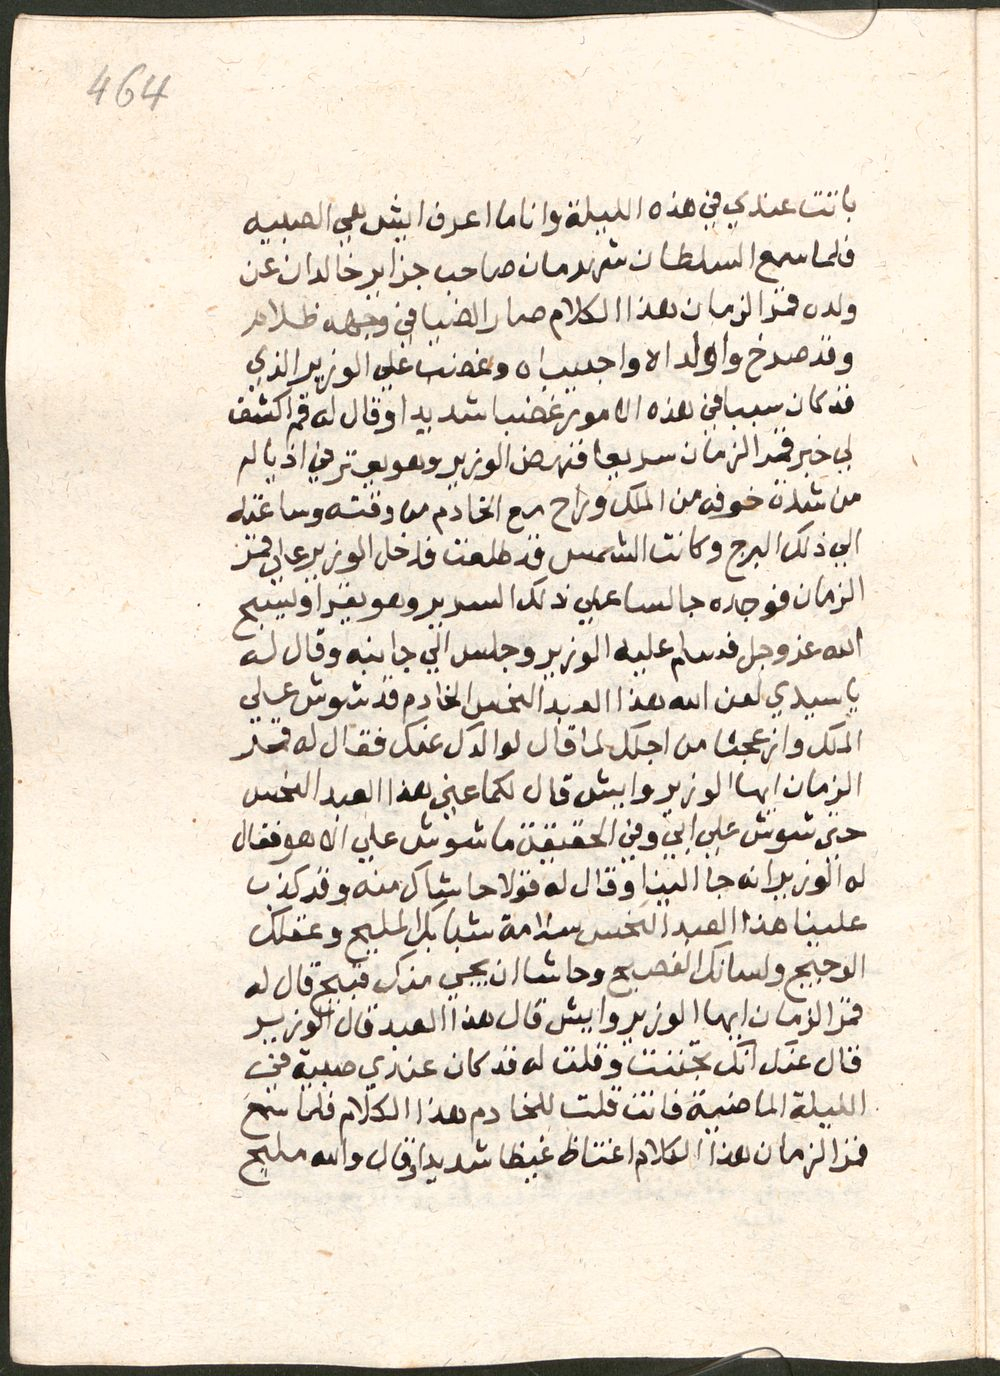 464
باتت عندي في هذه الليلة وانا ما اعرف ايش هي الصبيه
فلما سمع السلطان شهرمان صاحب جزاير خالدان عن
ولده قمر الزمان هذا الكلام صار الضيا في وجهه ظلام
وقد صرخ واولداه واحبيباه وغضب علي الوزير الذي
قد كان سببا في هذه الامور غضبا شديدا وقال له قم اكشف
لي خبر قمر الزمان سريعا فنهض الوزير وهو يعتر في اذياله
من شدة خوفه من الملك وراح مع الخادم من وقته وساعته
الي ذلك البرج وكانت الشمس قد طلعت فدخل الوزير علي قمر
الزمان فوجده جالسا علي ذلك السرير وهو يقرا ويسبح
الله عز وجل فسلم عليه الوزير وجلس الي جانبه وقال له
يا سيدي لعن الله هذا العبد النحس الخادم قد شوش علي
الملك وانزعجنا من اجلك لما قال لوالدك عنك فقال له قمر
الزمان ايها الوزير وايش قال لكما عني هذا العبد النحس
حتى شوش علي ابي وفي الحقيقة ما شوش علي الا هو فقال
له الوزير انه جا الينا وقال له قولا حاشاك منه وقد كذب
علينا هذا العبد النحس سلامة شبابك المليح وعقلك
الوجيح ولسانك الفصيح وحاشا ان يجي منك قبيح قال له
قمر الزمان ايها الوزير وايش قال هذا العبد قال الوزير
قال عنك انك تجننت وقلت له قد كان عندي صبية في
الليلة الماضية فانت قلت للخادم هذا الكلام فلما سمع
قمر الزمان هذا الكلام اغتاظ غيظا شديدا وقال والله مليح